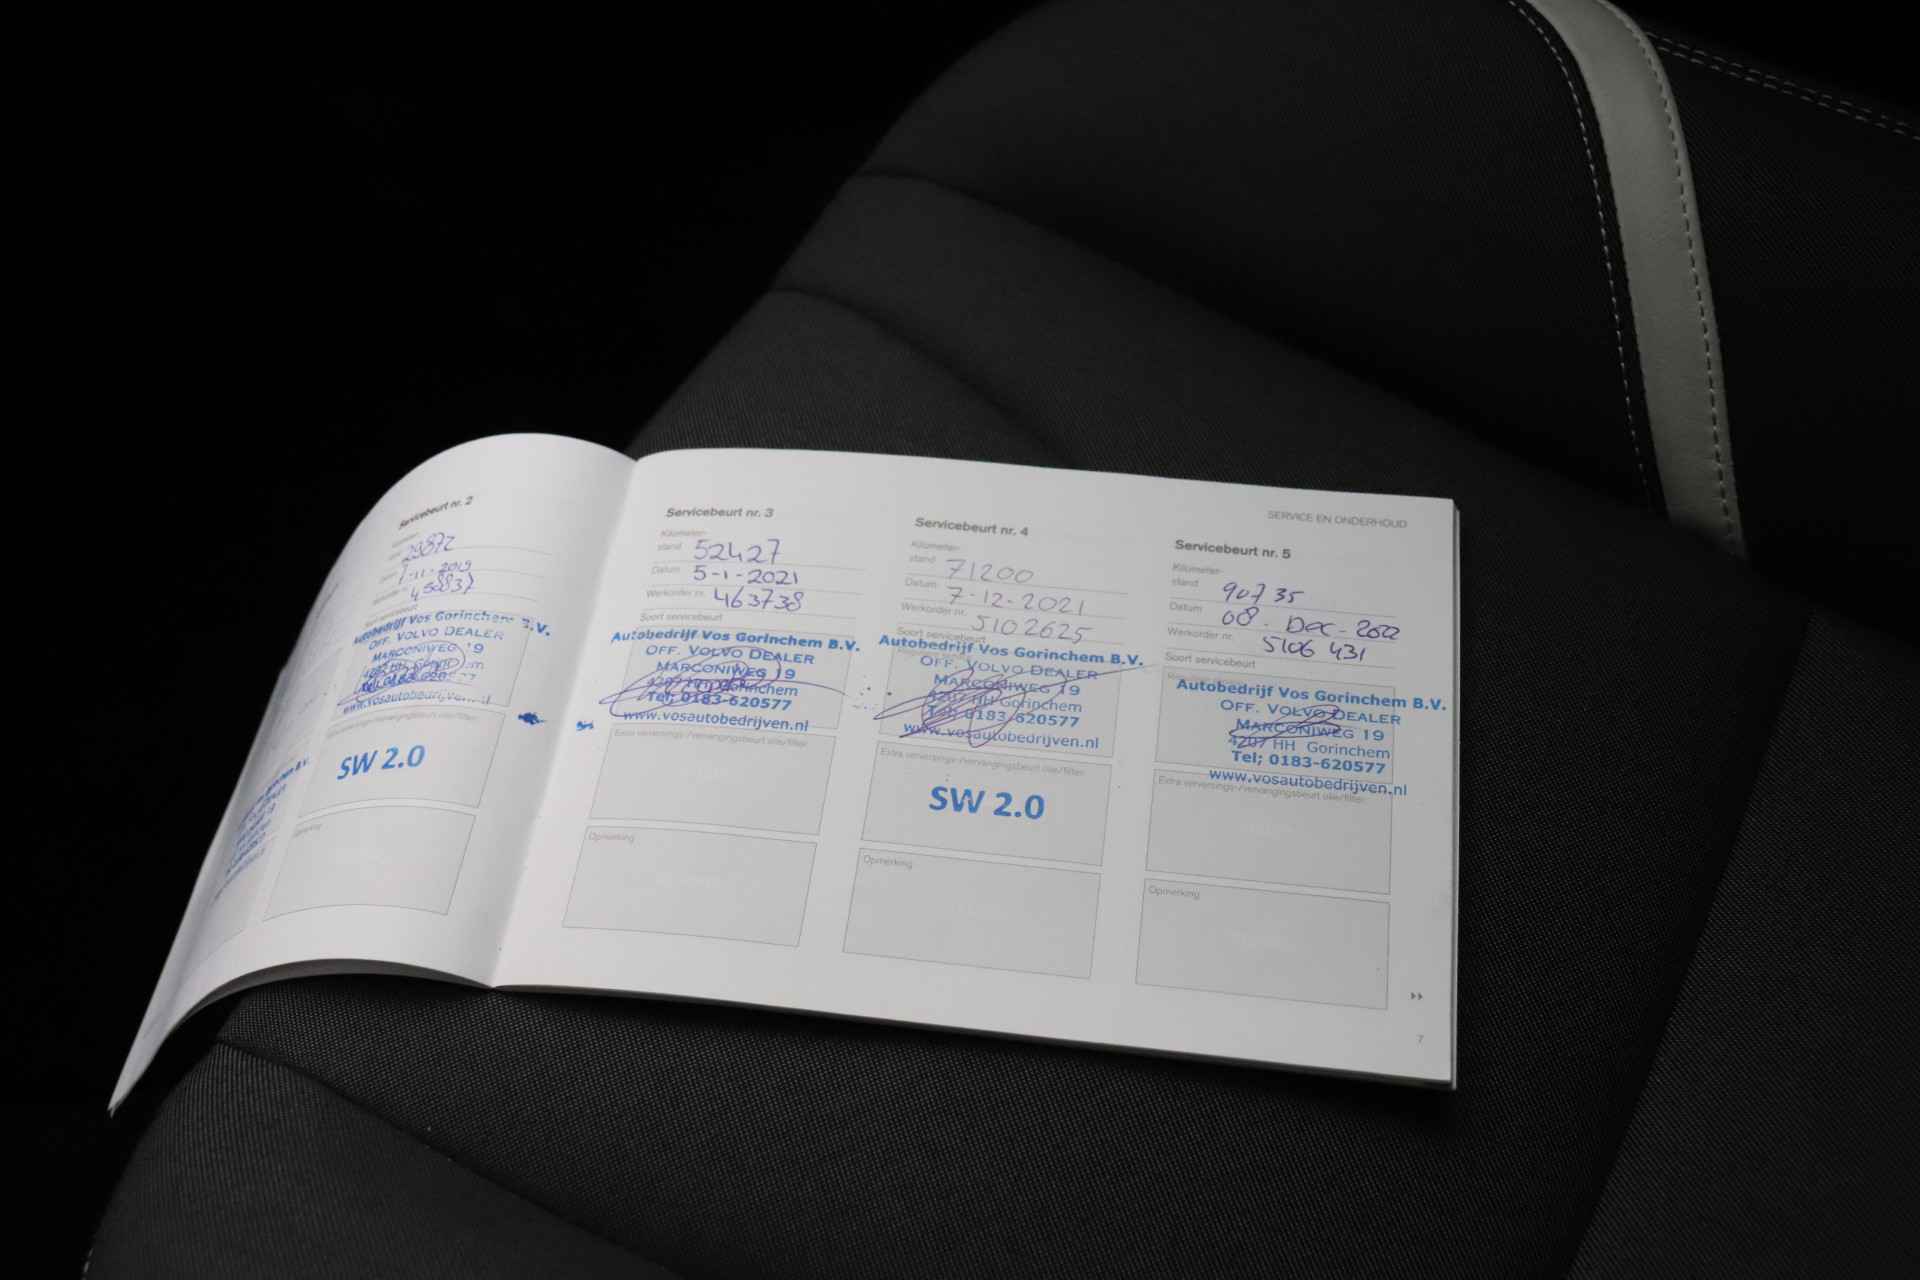 Servicebeurt nr. 2
29872
7-11-2019
Werkorder nr. 450837
Soort servicebeurt
Autobedrijf Vos Gorinchem B.V.
OFF. VOLVO DEALER
MARCONIWEG 19
4207 HH
Tel; 0183
www.vosautobedrijven.nl
SW 2.0
Opmerking
Servicebeurt nr. 3
Kilometer-
stand 52427
Datum 5-1-2021
Werkorder nr. 463738
Soort servicebeurt
Autobedrijf Vos Gorinchem B.V.
OFF. VOLVO DEALER
MARCONIWEG 19
4207 HH Gorinchem
Tel; 0183-620577
www.vosautobedrijven.nl
Extra verversings-/vervangingsbeurt olie/filter
Opmerking
Servicebeurt nr. 4
Kilometer-
stand 71200
Datum 7-12-2021
Werkorder nr. 5102625
Soort servicebeurt
Autobedrijf Vos Gorinchem B.V.
OFF. VOLVO DEALER
MARCONIWEG 19
4207 HH Gorinchem
Tel; 0183-620577
www.vosautobedrijven.nl
Extra verversings-/vervangingsbeurt olie/filter
SW 2.0
Opmerking
SERVICE EN ONDERHOUD
Servicebeurt nr. 5
Kilometer-
stand 90735
Datum 08-Dec-2022
Werkorder nr. 5106 431
Soort servicebeurt
Autobedrijf Vos Gorinchem B.V.
OFF. VOLVO DEALER
MARCONIWEG 19
4207 HH Gorinchem
Tel; 0183-620577
www.vosautobedrijven.nl
Extra verversings-/vervangingsbeurt olie/filter
Opmerking
7